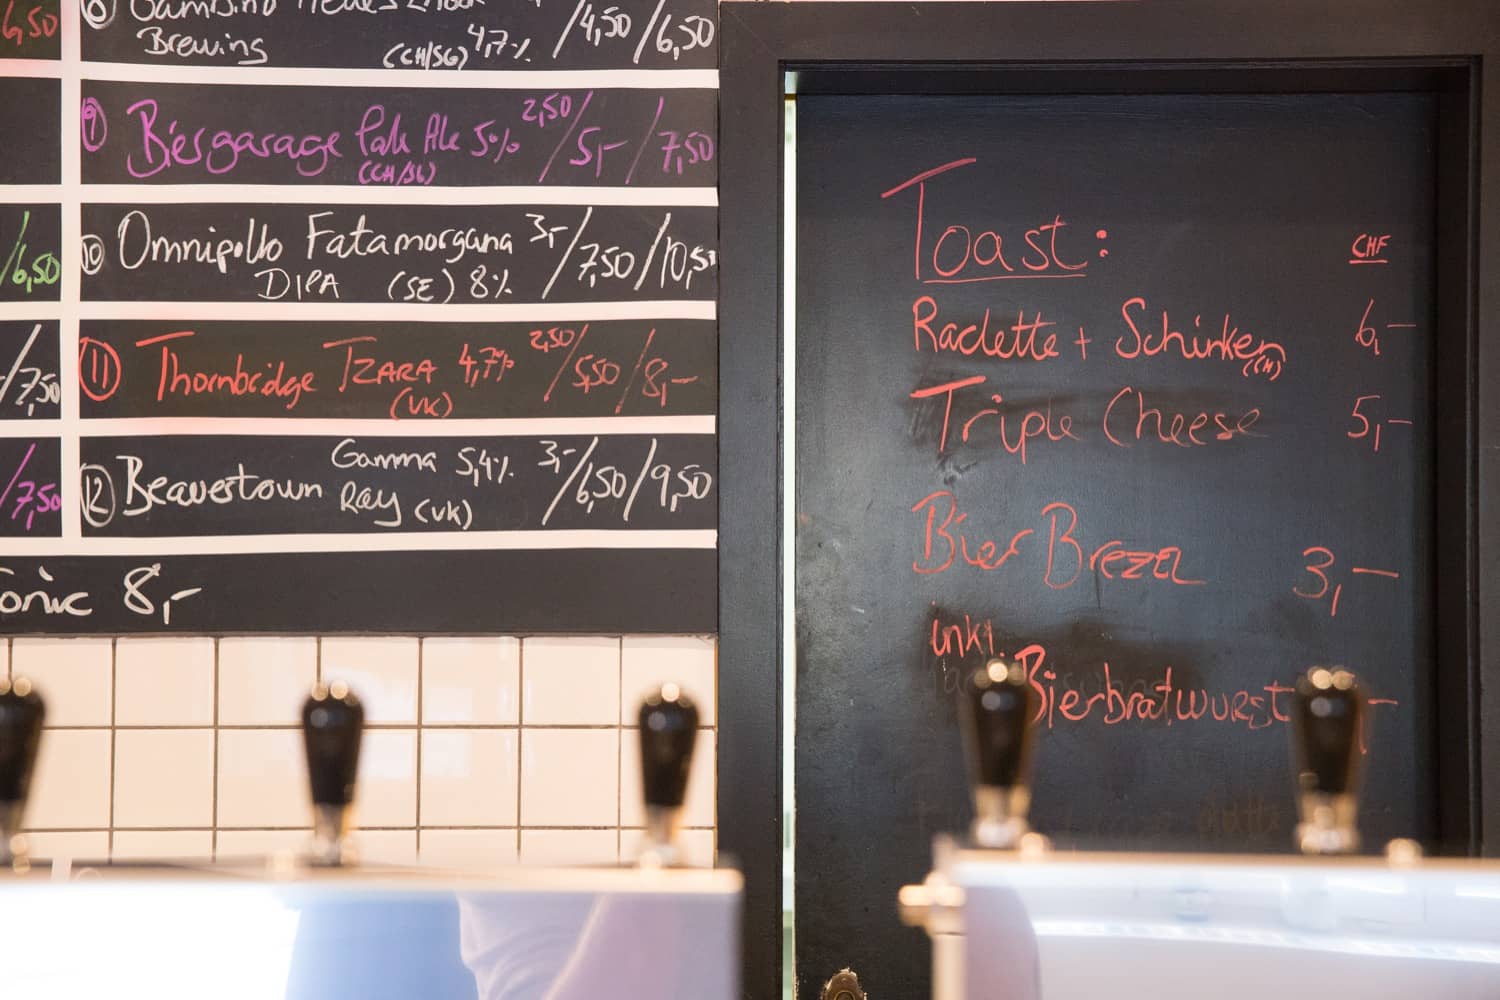 6,50
8 Gambino
Brewing (CH/SG) 4,7% /4,50/6,50
9 Biergarage Pale Ale 5% 2,50/5,-/7,50
(CH/SG)
/6,50
10 Omnipollo Fatamorgana 3,-/7,50/10,5
DIPA (SE) 8%
/7,50
11 Thornbridge TZARA 4,7% 2,50/5,50/8,-
(UK)
/7,50
12 Beavertown Gamma Ray 5,4% 3,-/6,50/9,50
(UK)
onic 8,-
Toast: CHF
Raclette + Schinken (CH) 6,-
Triple Cheese 5,-
Bier Brezel 3,-
inkl.
Bierbratwurst